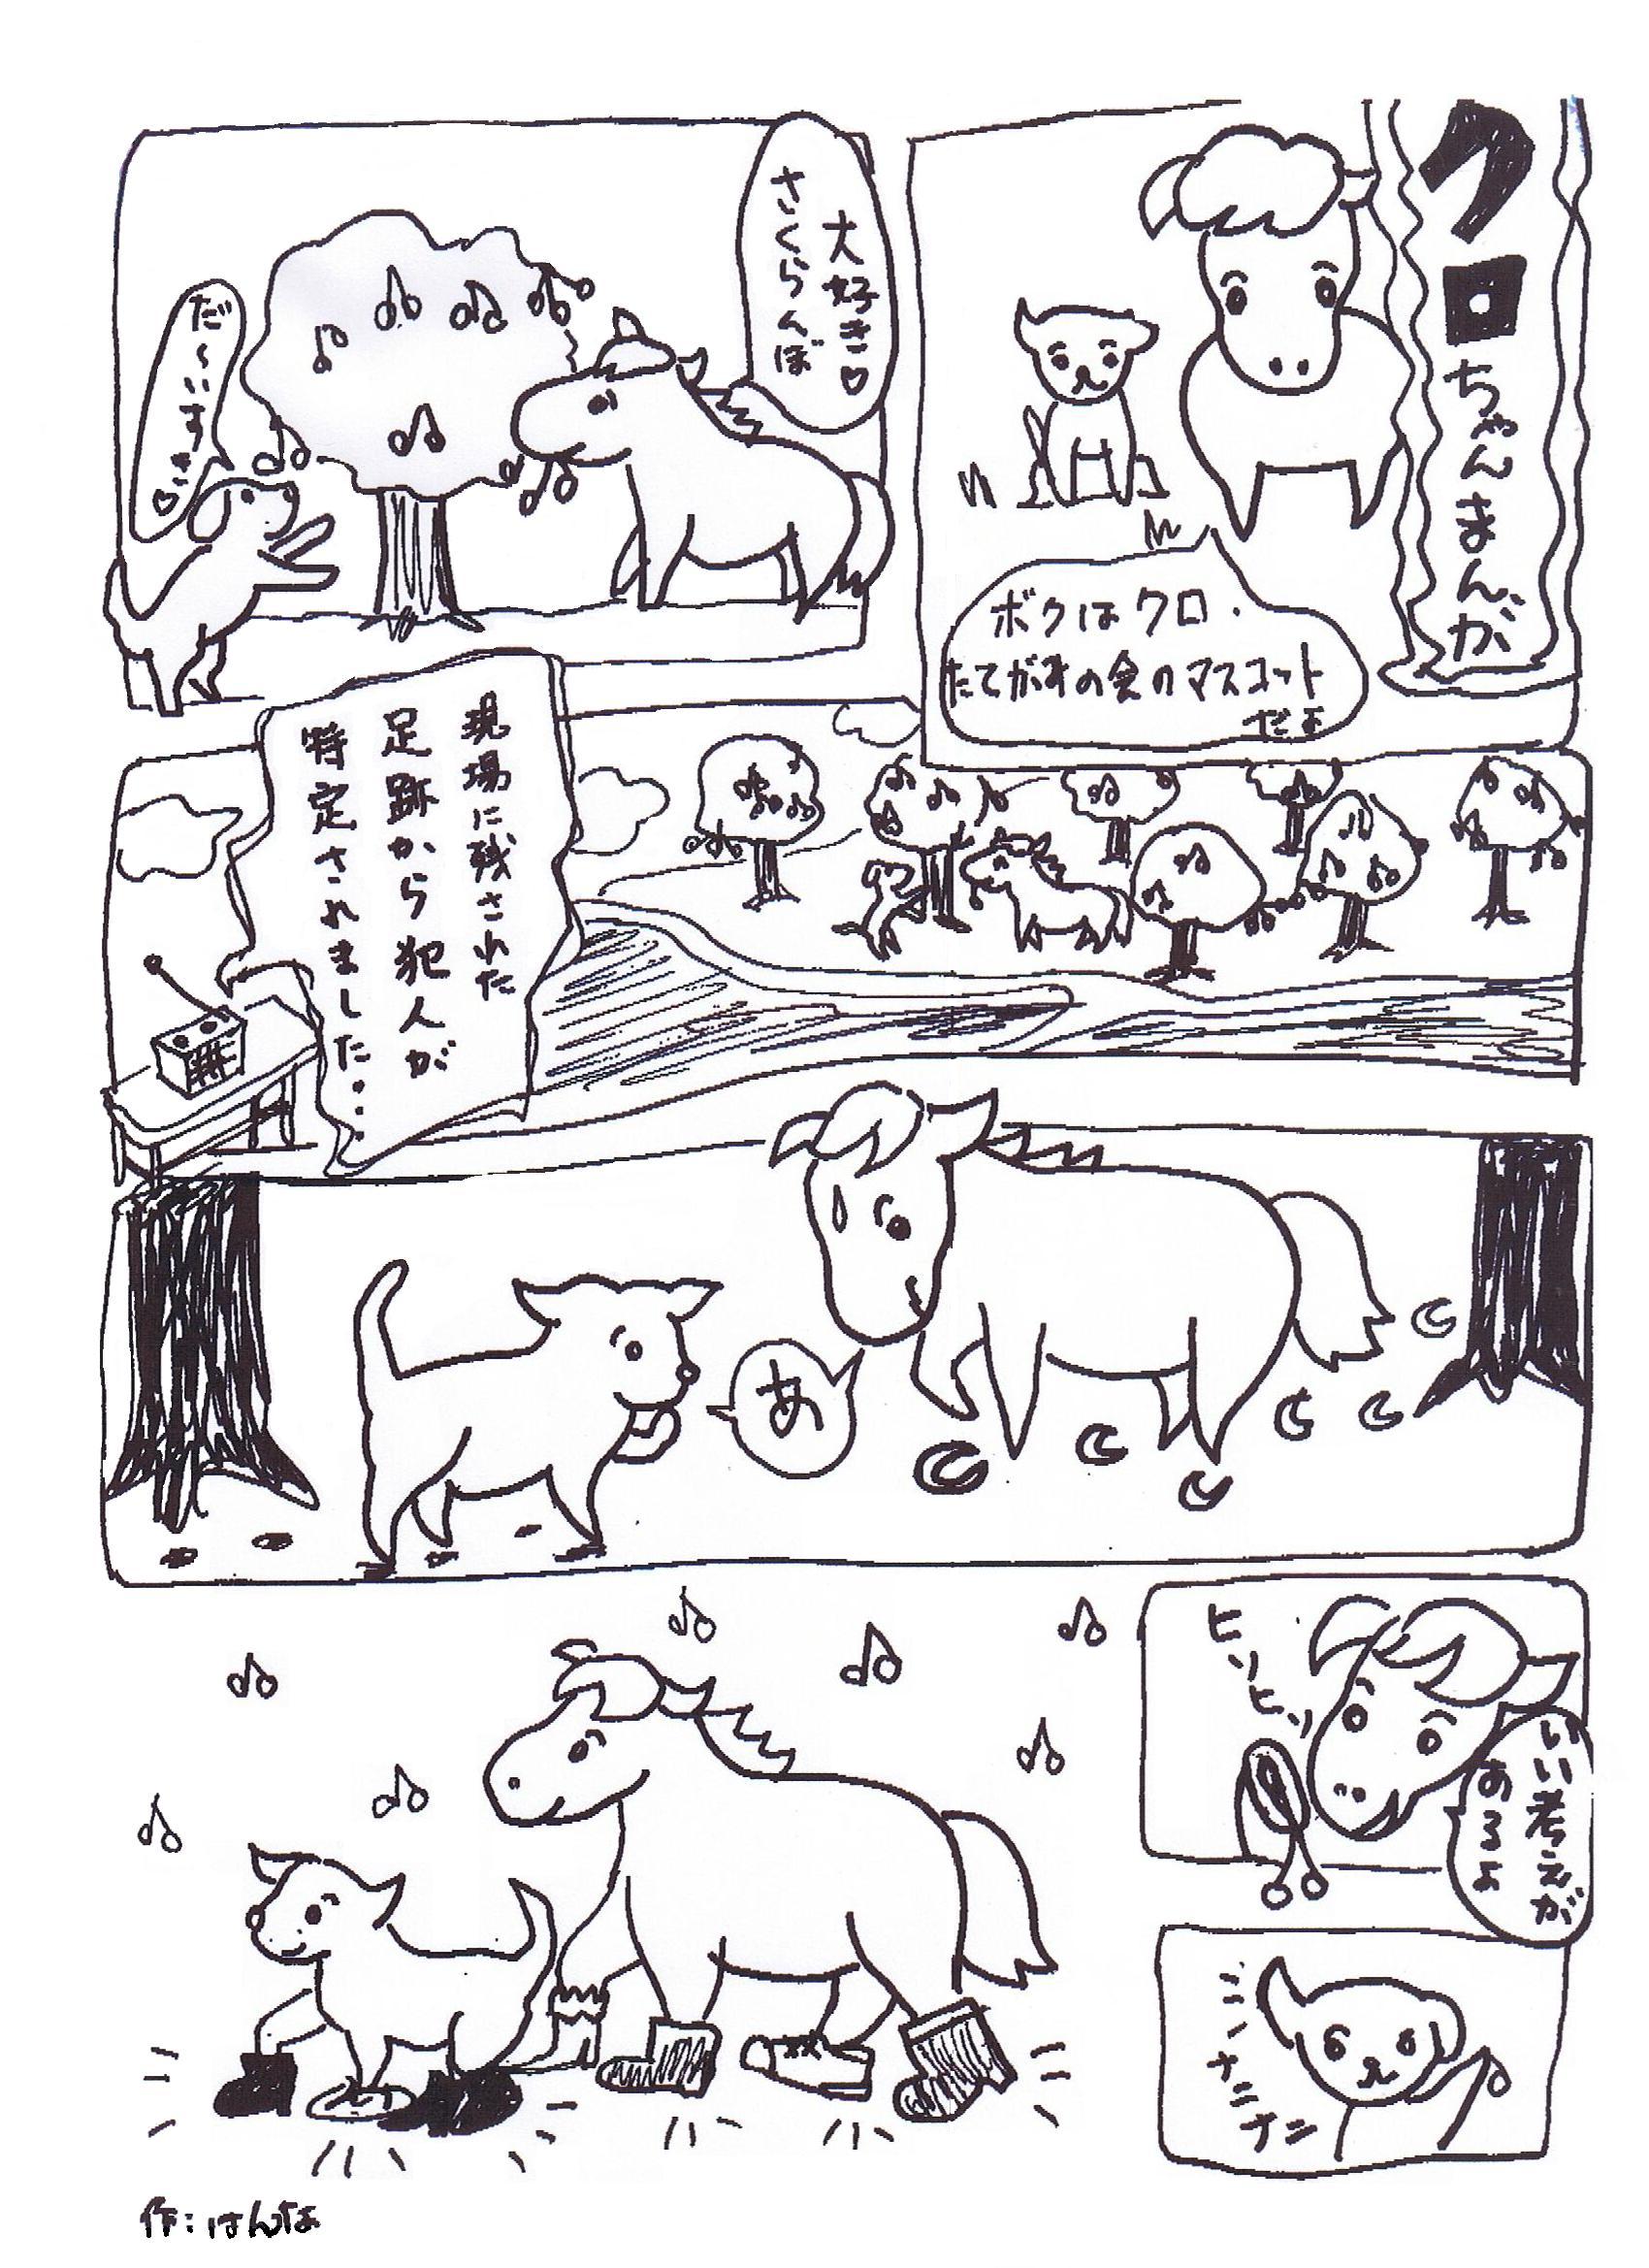 クロちゃんまんが
ボクはクロ.
たてがみの会のマスコット
だよ
大好き♡
さくらんぼ
だ〜いすき♡
現場に残された
足跡から犯人が
特定されました・・・
あ
いい考えが
あるよ
ヒソヒソ
ナニナニ
作:はんな